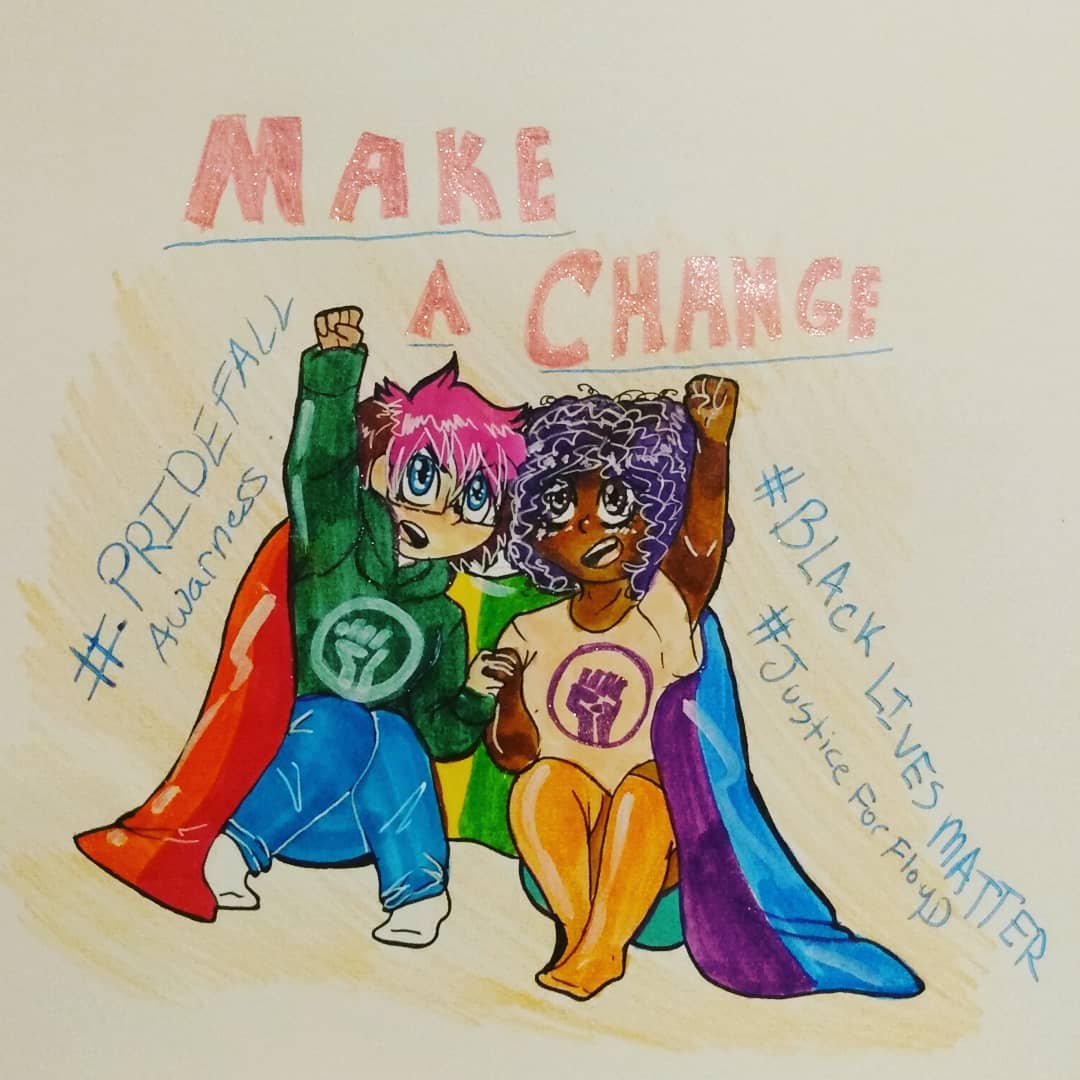 MAKE
A CHANGE
#.PRIDEFALL
AWARNESS.
#BLACK LIVES MATTER
#Justice For FloyD